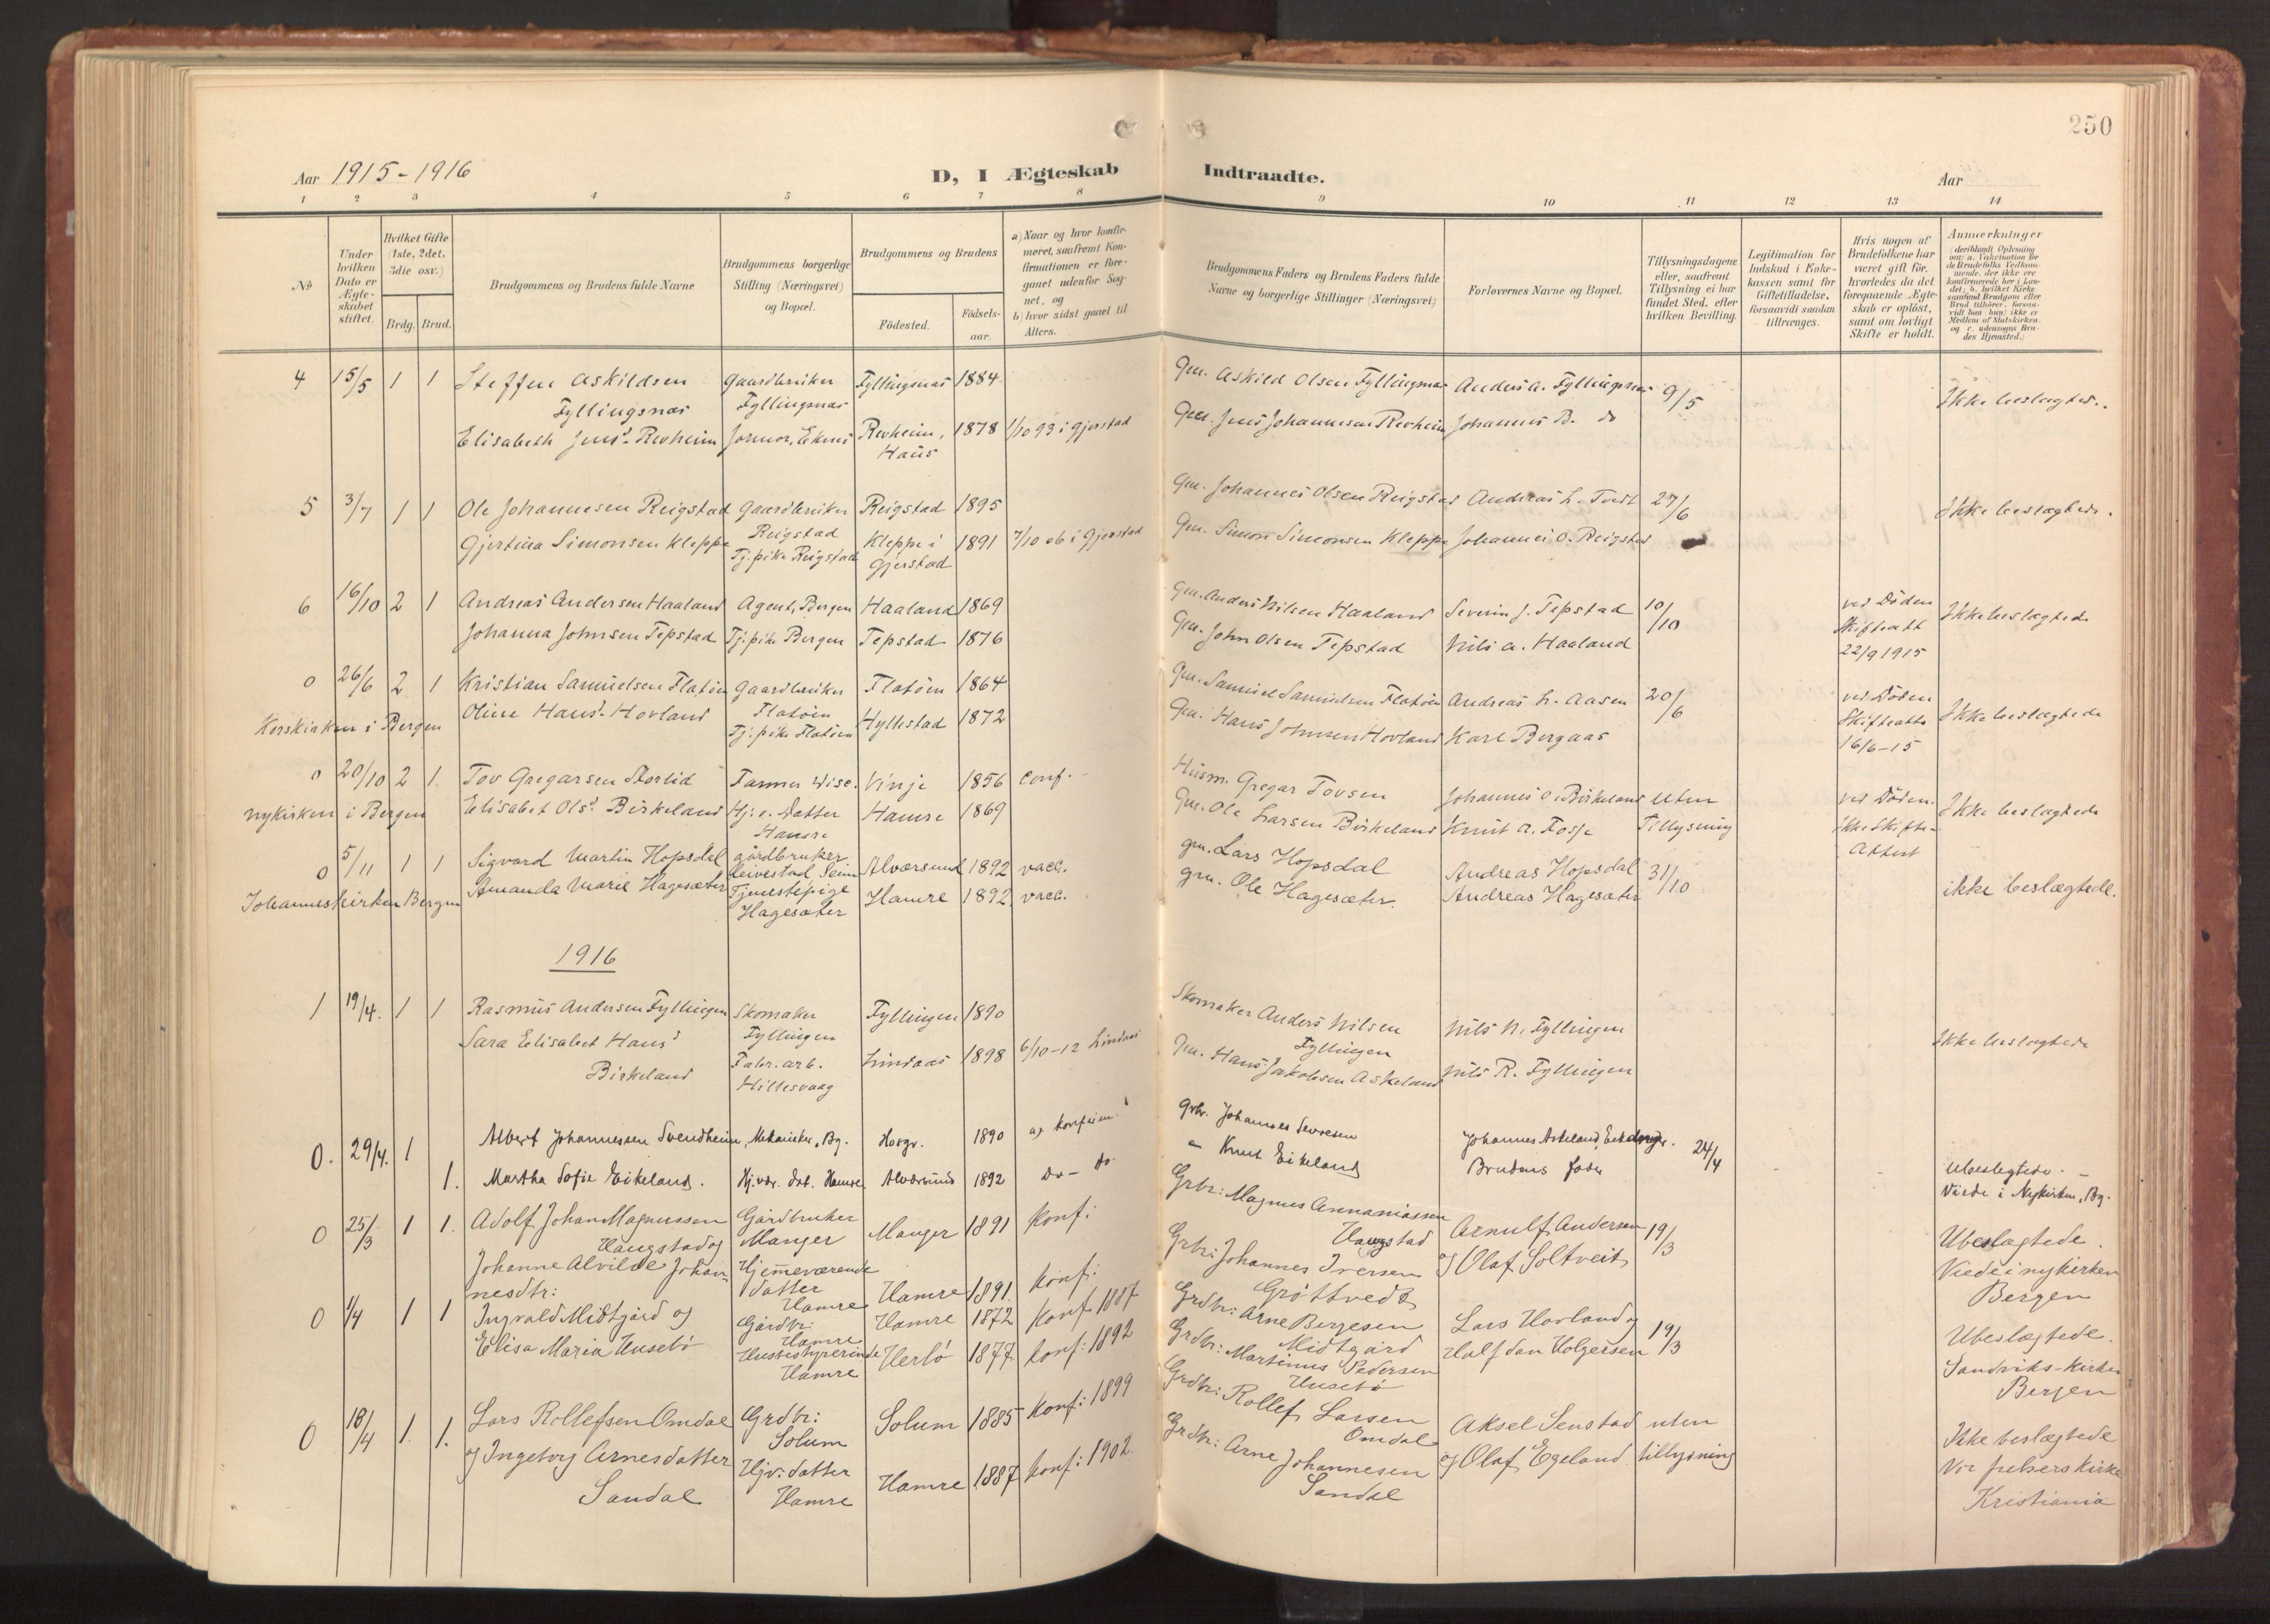 250
Aar 1915-1916
D, I Ægteskab Indtraadte.
Aar
1 2 3 4 5 6 7 8 9 10 11 12 13 14
No
Under hvilken Dato er Ægteskabet stiftet.
Hvilket Gifte (1ste, 2det, 3die osv.)
Brdg. Brud.
Brudgommens og Brudens fulde Navne
Brudgommens borgerlige Stilling (Næringsvei) og Bopæl.
Brudgommens og Brudens
Födested.
Födselsaar.
a) Naar og hvor konfirmeret, saafremt Konfirmationen er foregaaet udenfor Sognet, og
b) hvor sidst gaaet til Alters.
Brudgommens Faders og Brudens Faders fulde Navne og borgerlige Stillinger (Næringsvei)
Forlovernes Navne og Bopæl.
Tillysningsdagene eller, saafremt Tillysning ei har fundet Sted, efter hvilken Bevilling.
Legitimation for Indskud i Enkekassen samt for Giftetilladelse, forsaavidt saadan tiltrænges.
Hvis nogen af Brudefolkene har været gift för, hvorledes da det foregaaende Ægteskab er oplöst, samt om lovligt Skifte er holdt.
Anmerkninger
(deriblandt Oplysning om: a. Vakcination for de Brudefolks Vedkommende, der ikke ere konfirmerede her i Landet; b. hvilket Kirkesamfund Brudgom eller Brud tilhörer, forsaavidt han (hun) ikke er Medlem af Statskirken, og c. udensogns Brudes Hjemsted.)
4 15/5 1 1 Steffen Askildsen Gaardbruker Fyllingsnæs 1884 Gm. Askild Olsen Fyllingsnæs Anders A. Fyllingsnæs 9/5 Ikke beslegtede.
Fyllingsnæs Fyllingsnæs
Elisabeth Jensd. Revheim Jormor, Eknes Revheim, 1878 1/10 93 i Gjerstad Gm. Jens Johannesen Revheim Johannes B. do
Haus
5 3/7 1 1 Ole Johannesen Reigstad Gaardbruker Reigstad 1895 Gm. Johannes Olsen Reigstad Andreas L. Tvedt 27/6 Ikke beslægtede.
Reigstad
Gjertina Simonsen Kleppe Tj.pike Reigstad Kleppe i 1891 7/10 06 i Gjerstad Gm. Simon Simonsen Kleppe Johannes O. Reigstad
Gjerstad
6 16/10 2 1 Andreas Andersen Haaland Agent, Bergen Haaland 1869 Gm. Anders Nilsen Haaland Severin J. Tepstad 10/10 ved Døden Ikke beslægtede
Johanna Johnsen Tepstad Tj.pike Bergen Tepstad 1876 Gm. John Olsen Tepstad Nils A. Haaland Skifteatt 22/9 1915
0 26/6 2 1 Kristian Samuelsen Flatøen Gaardbruker Flatøen 1864 Gm. Samuel Samuelsen Flatøen Andreas L. Aasen 20/6 ved Døden Ikke beslægtede
Flatøen
Korskirken i Bergen Oline Hansd. Hovland Tj.pike Flatøen Hyllestad 1872 Gm. Hans Johnsen Hovland Karl Bergaas Skifteatte 16/6-15
0 20/10 2 1. Tov Gregarsen Storlid Farmer Wisc. Vinje 1856 conf. Husm. Gregar Tovsen Johannes O. Birkeland uten ved Døden. Ikke beslægtede
Nykirken i Bergen Elisabet Olsd. Birkeland Hj.v. Datter Hamre 1869 Gm. Ole Larsen Birkeland Knut A. Fosse Tillysning ikke Skifte-
Hamre Attest
0 5/11 1 1 Sigvard Martin Hopsdal gårdbruker Alværsund 1892 vacc. gm. Lars Hopsdal Andreas Hopsdal 31/10 ikke beslægtede.
Johanneskirken Bergen Amanda Marie Hagesæter Tjenestepige Hamre 1892 vacc. gm. Ole Hagesæter. Andreas Hagesæter
Hagesæter
1916
1 19/4. 1 1 Rasmus Andersen Fyllingen Skomaker Fyllingen 1890 Skomaker Anders Nilsen Nils N. Fyllingen Ikke beslægtede
Fyllingen Fyllingen
Sara Elisabet Hansd Fabr. arb. Lindaas 1898 6/10-12 Lindaas Gm. Hans Jakobsen Askeland Nils R. Fyllingen
Birkeland Hillesvaag
0. 29/4. 1 Albert Johannessen Svendheim, Mekaniker, Bg. 1890 Gbr. Johannes Johannes Askeland, 24/4
1. Martha Sofie Eikeland. Hj.vær. dat. Hamre. Alværsund 1892 do- do. - Knut Eikeland Brudens fader Ubeslegtede. - Viede i Nykirken, Bg.
0 25/3 1 1. Adolf Johan Magnussen Gårdbruker Manger 1891 Konf: Grbr: Magnus Annaniassen Arnulf Andersen 19/3 Ubeslagtede.
Haugstad og Manger Haugstad
Johanne Alvilde Johan- Hjemmeværende Grbr: Johannes Iversen og Olaf Soltveit Viede i nykirken
nesdtr: datter Hamre Hamre 1891. Konf: Gröttvedt Bergen
0 1/4 1 1 Ingvald Midtgård og Gårdbr: Hamre Hamre 1872 Konf. 1887 Grdbr: Arne Bergesen Midtgård Lars Hovland og 19/3 Ubeslægtede.
Elisa Maria Husebö Husbestyrerinde Hamre Herlö 1877 Konf: 1892 Grdbr: Martinus Pedersen Husebö Halfdan Holgersen Sandviks-kirken Bergen
0 18/4 1. 1. Lars Rollefsen Omdal Grdbr: Solum Solum 1885 Konf: 1899 Grdbr: Rollef Larsen Omdal Aksel Senstad uten Ikke beslægtede
og Ingeborg Arnesdatter Hjv: datter Hamre 1887 Konf: 1902. Grdbr: Arne Johannesen og Olaf Egeland. tillysning Vor frelsers kirke
Sandal Hamre Sandal Kristiania